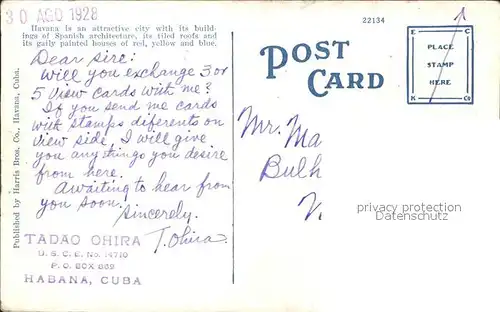 30 AGO 1928
Havana is an attractive city with its build-
ings of Spanish architecture, its tiled roofs and
its gaily painted houses of red, yellow and blue.
Dear sire:
Will you exchange 3 or
5 view cards with me?
If you send me cards
with stamps diferents on
view side, I will give
you any things you desire
from here.
Awaiting to hear from
you soon.
Sincerely.
T. Ohira.
TADAO OHIRA
U. S. C. E. No. 14710
P. O. BOX 869
HABANA, CUBA
Published by Harris Bros. Co., Havana, Cuba.
22134
POST
CARD
E C
PLACE
STAMP
HERE
K Co
Mr. Ma
Bulh
privacy protection
Datenschutz